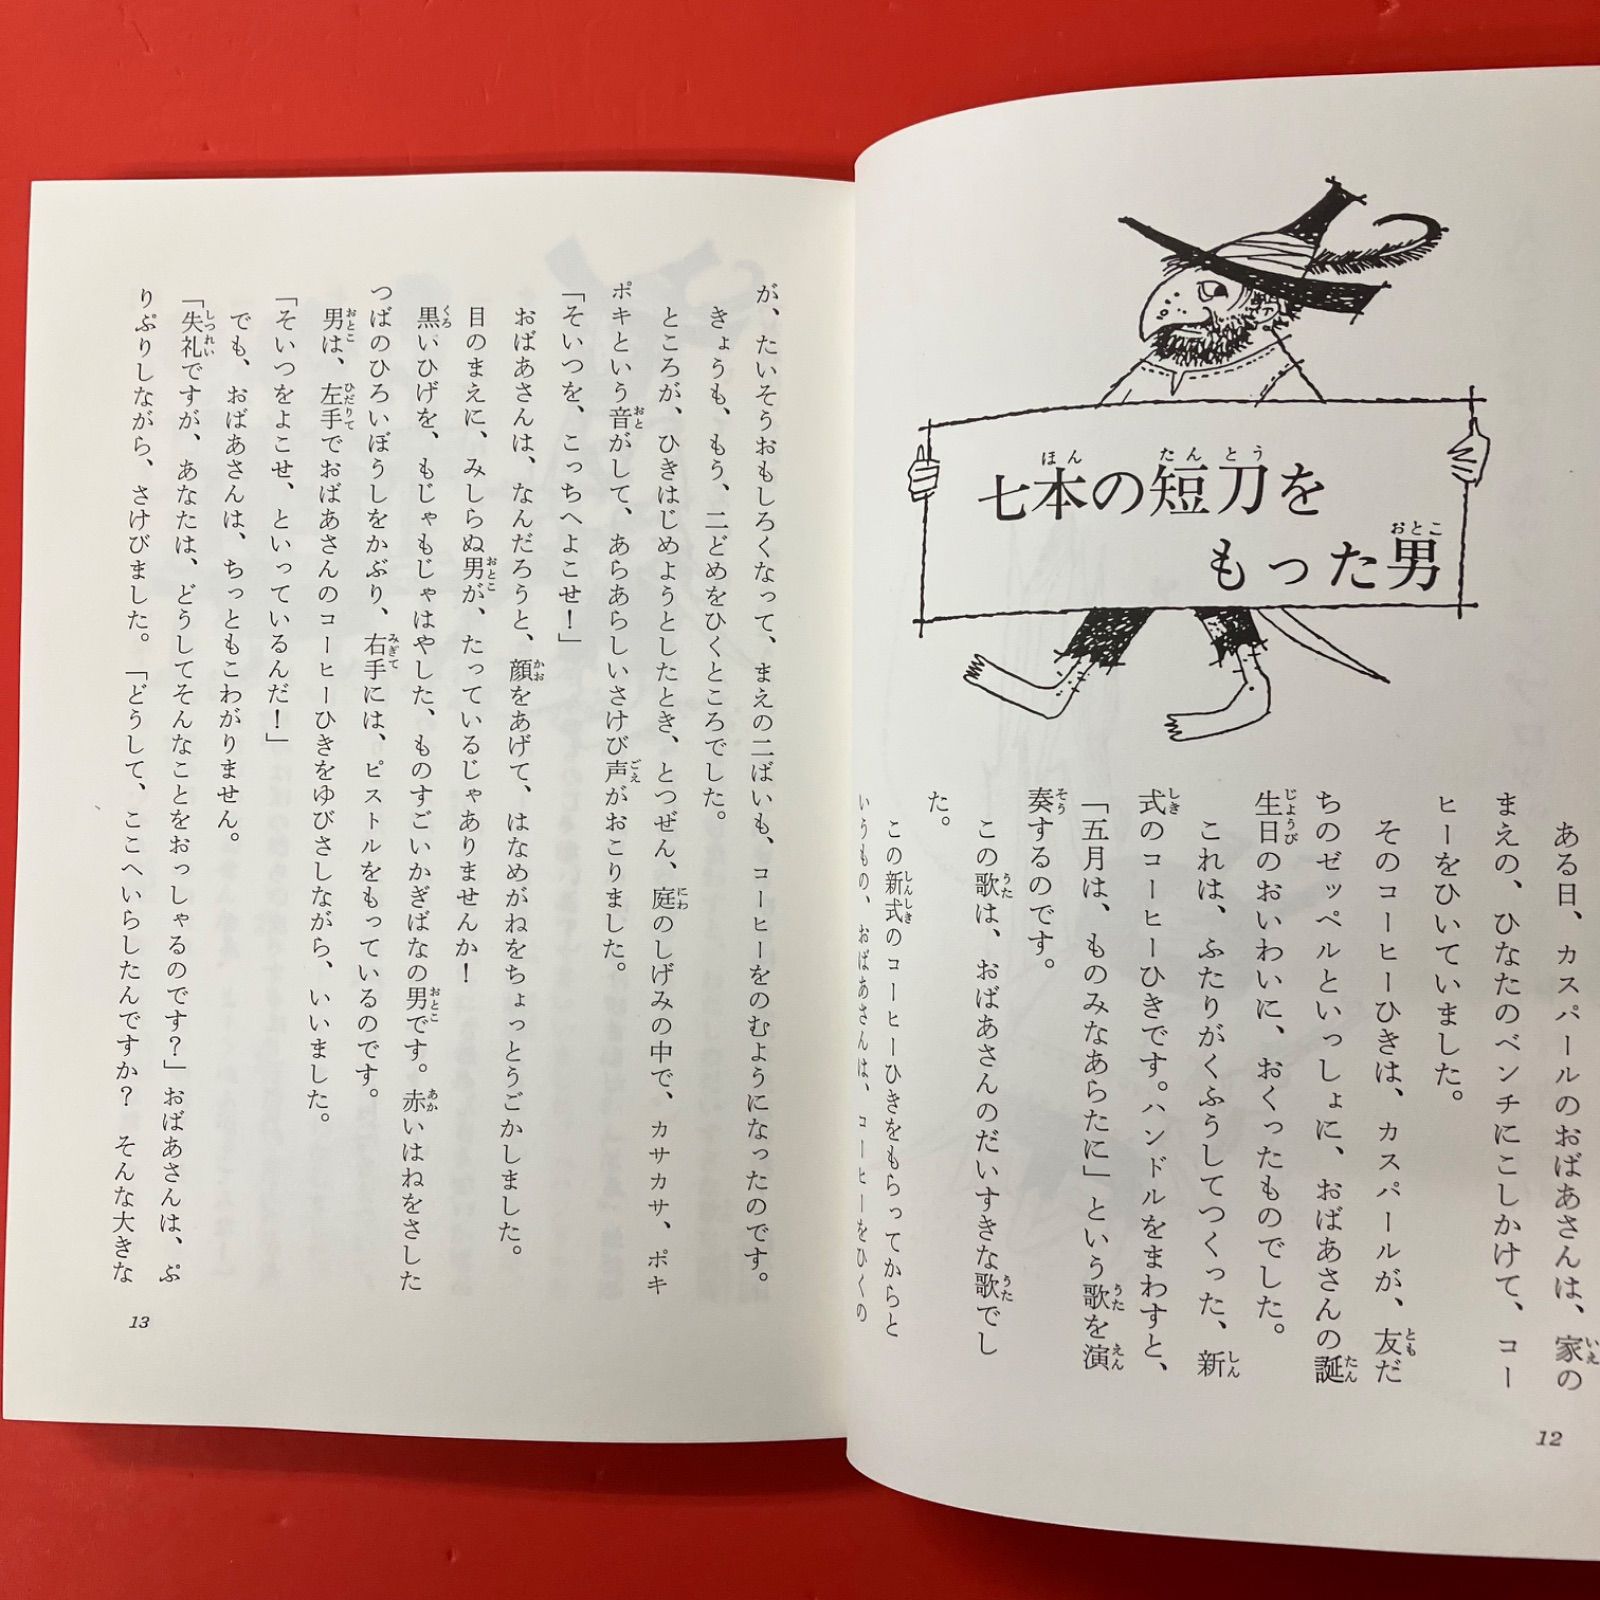 七本の短刀を
もった男
ある日、カスパールのおばあさんは、家の
まえの、ひなたのベンチにこしかけて、コー
ヒーをひいていました。
そのコーヒーひきは、カスパールが、友だ
ちのゼッペルといっしょに、おばあさんの誕
生日のおいわいに、おくったものでした。
これは、ふたりがくふうしてつくった、新
式のコーヒーひきです。ハンドルをまわすと、
「五月は、ものみなあらたに」という歌を演
奏するのです。
この歌は、おばあさんのだいすきな歌でし
た。
この新式のコーヒーひきをもらってからと
いうもの、おばあさんは、コーヒーをひくの
12
が、たいそうおもしろくなって、まえの二ばいも、コーヒーをのむようになったのです。
きょうも、もう、二どめをひくところでした。
ところが、ひきはじめようとしたとき、とつぜん、庭のしげみの中で、カサカサ、ポキ
ポキという音がして、あらあらしいさけび声がおこりました。
「そいつを、こっちへよこせ！」
おばあさんは、なんだろうと、顔をあげて、はなめがねをちょっとうごかしました。
目のまえに、みしらぬ男が、たっているじゃありませんか！
黒いひげを、もじゃもじゃはやした、ものすごいかぎばなの男です。赤いはねをさした
つばのひろいぼうしをかぶり、右手には、ピストルをもっているのです。
男は、左手でおばあさんのコーヒーひきをゆびさしながら、いいました。
「そいつをよこせ、といっているんだ！」
でも、おばあさんは、ちっともこわがりません。
「失礼ですが、あなたは、どうしてそんなことをおっしゃるのです？」おばあさんは、ぷ
りぷりしながら、さけびました。「どうして、ここへいらしたんですか？ そんな大きな
13